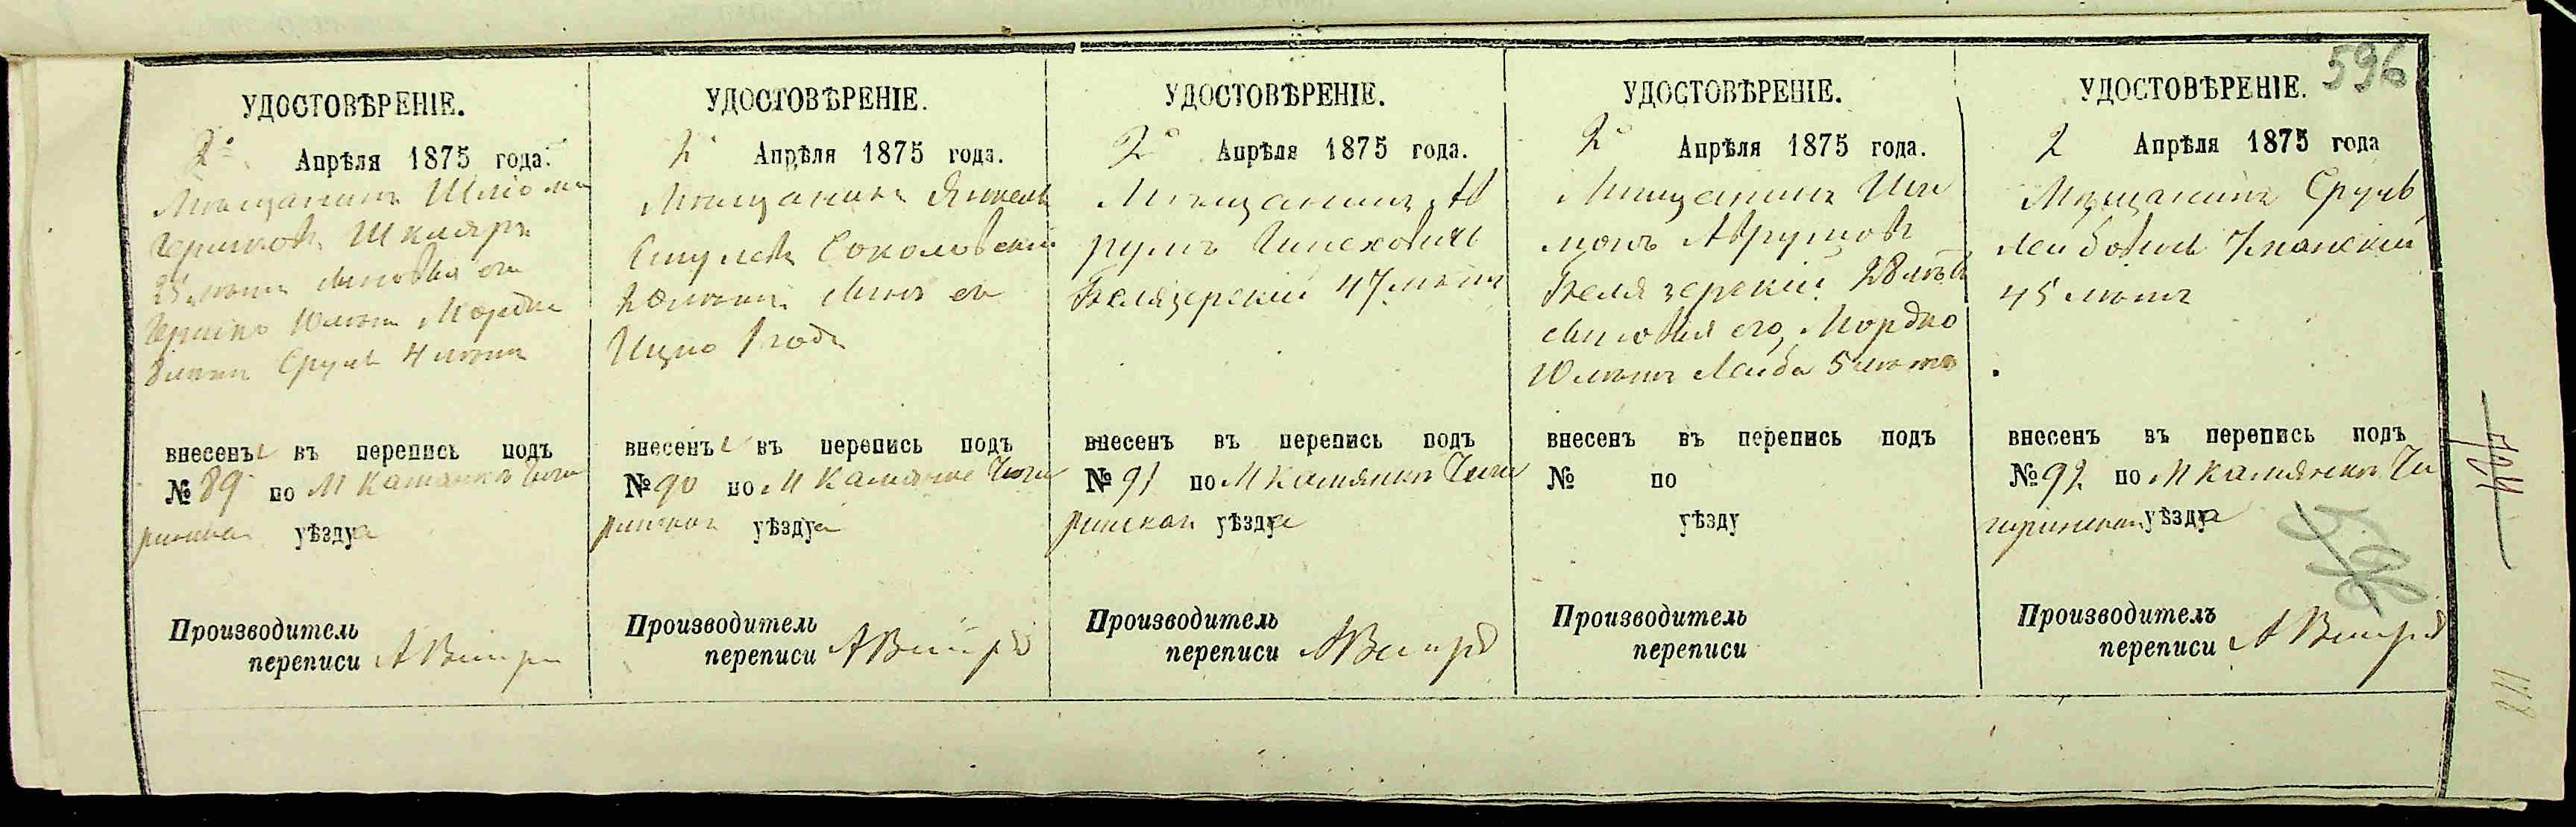 596
УДОСТОВѢРЕНІЕ.
2 Апрѣля 1875 года.
Мѣщанинъ Шліома
Гершковъ Шкляръ
25 лѣтъ сыновья его
Гершко 10 лѣтъ Мордко
8 лѣтъ Сруль 4 лѣтъ
внесены въ перепись подъ
№ 89 по М Камянкѣ Чиги
ринска уѣзда
Производитель
переписи
УДОСТОВѢРЕНІЕ.
2 Апрѣля 1875 года.
Мѣщанинъ Янкель
Соколовскій
лѣтъ сынъ ег
Ицко 1 года
внесены въ перепись подъ
№ 90 по М Камянкѣ Чиги
ринскаг уѣзда
Производитель
переписи
УДОСТОВѢРЕНІЕ.
2 Апрѣля 1875 года.
Мѣщанинъ А
румъ
Белязерскій 47 лѣтъ
внесенъ въ перепись подъ
№ 91 по М Камянкѣ Чиги
ринскаг уѣзда
Производитель
переписи
УДОСТОВѢРЕНІЕ.
2 Апрѣля 1875 года.
Мѣщанинъ
Аврумовъ
Белязерскій 28 лѣтъ
сыновья его, Мордко
10 лѣтъ Лейба 5 лѣтъ
внесенъ въ перепись подъ
№ по
уѣзду
Производитель
переписи
УДОСТОВѢРЕНІЕ.
2 Апрѣля 1875 года
Мѣщанинъ Сруль
Лейбовичъ Уманскій
45 лѣтъ
внесенъ въ перепись подъ
№ 92 по М Камянкѣ Чи
гиринскаг уѣзда
Производитель
переписи